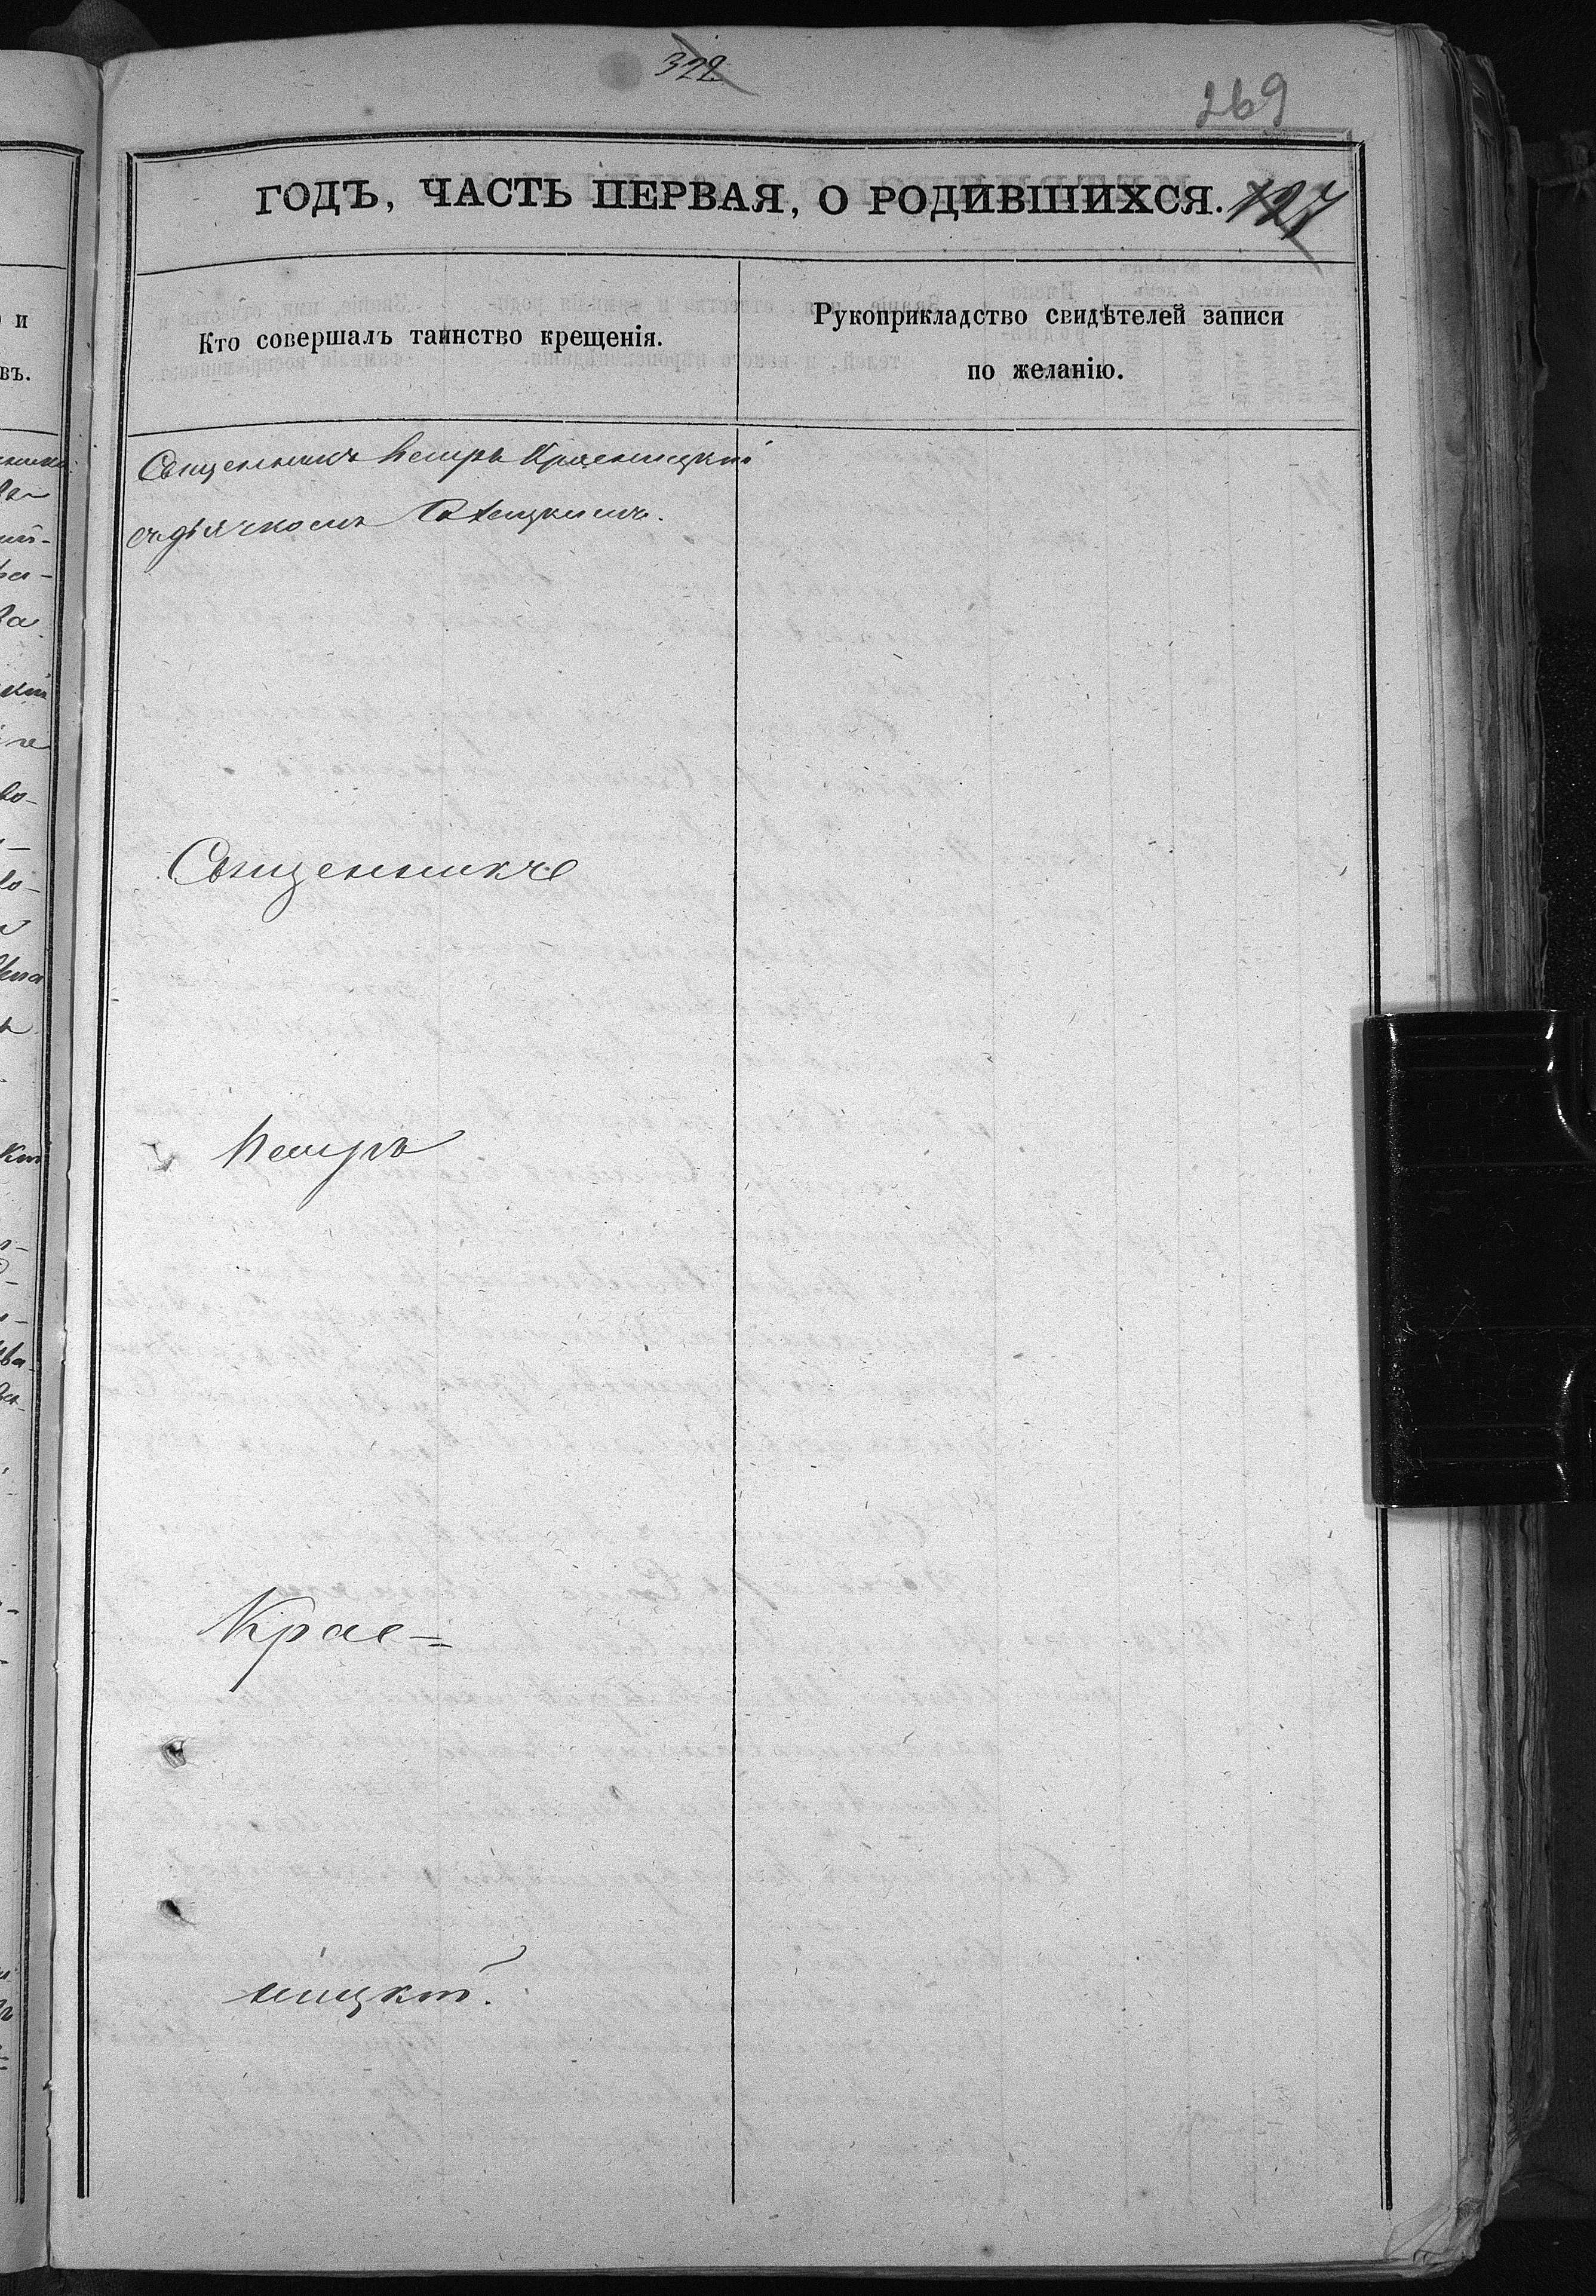 322
269
ГОДЪ, ЧАСТЬ ПЕРВАЯ, О РОДИВШИХСЯ. 127
Кто совершалъ таинство крещенія.
Рукоприкладство свидѣтелей записи
по желанію.
Священникъ Петръ Красницкій
съ дьячкомъ
Священникъ
Петръ
Крас=
ницкій.